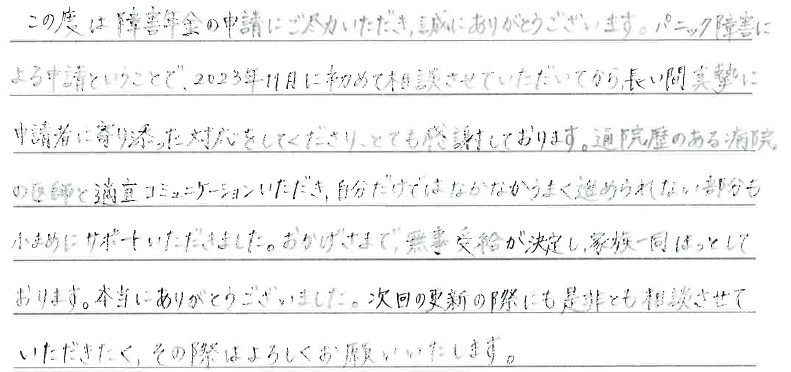 この度は障害年金の申請にご尽力いただき、誠にありがとうございます。パニック障害に
よる申請ということで、2023年11月に初めて相談させていただいてから、長い間真摯に
申請者に寄り添った対応をしてくださり、とても感謝しております。通院歴のある病院
の医師と適宜コミュニケーションいただき、自分だけではなかなかうまく進められない部分も
小まめにサポートいただきました。おかげさまで、無事受給が決定し、家族一同ほっとして
おります。本当にありがとうございました。次回の更新の際にも是非とも相談させて
いただきたく、その際はよろしくお願いいたします。